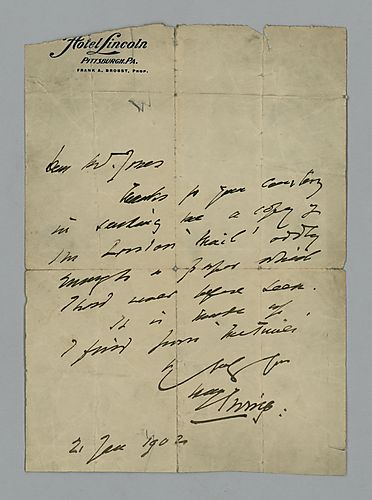 Hotel Lincoln
PITTSBURGH, PA.
FRANK A. BROBST, PROP.
Dear Mr. Jones
Thanks for your courtesy
in sending me a copy of
the London 'Mail' oddly
enough a paper which
I had never before seen.
It is
I find from
Irving.
2. Jan 1902